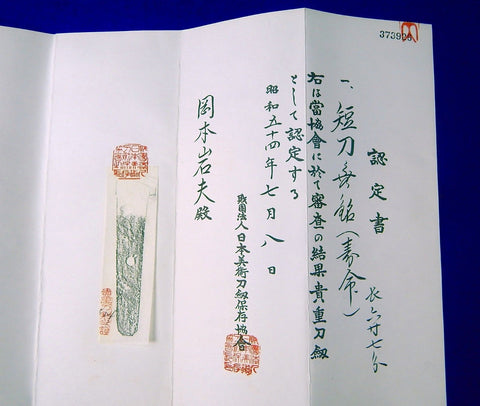 373926
認定書
一、短刀無銘(寿命)
長六寸七分
右は當協會に於て審査の結果貴重刀劔
として認定する
昭和五十四年七月八日
財団法人日本美術刀劔保存協會
岡本岩夫殿